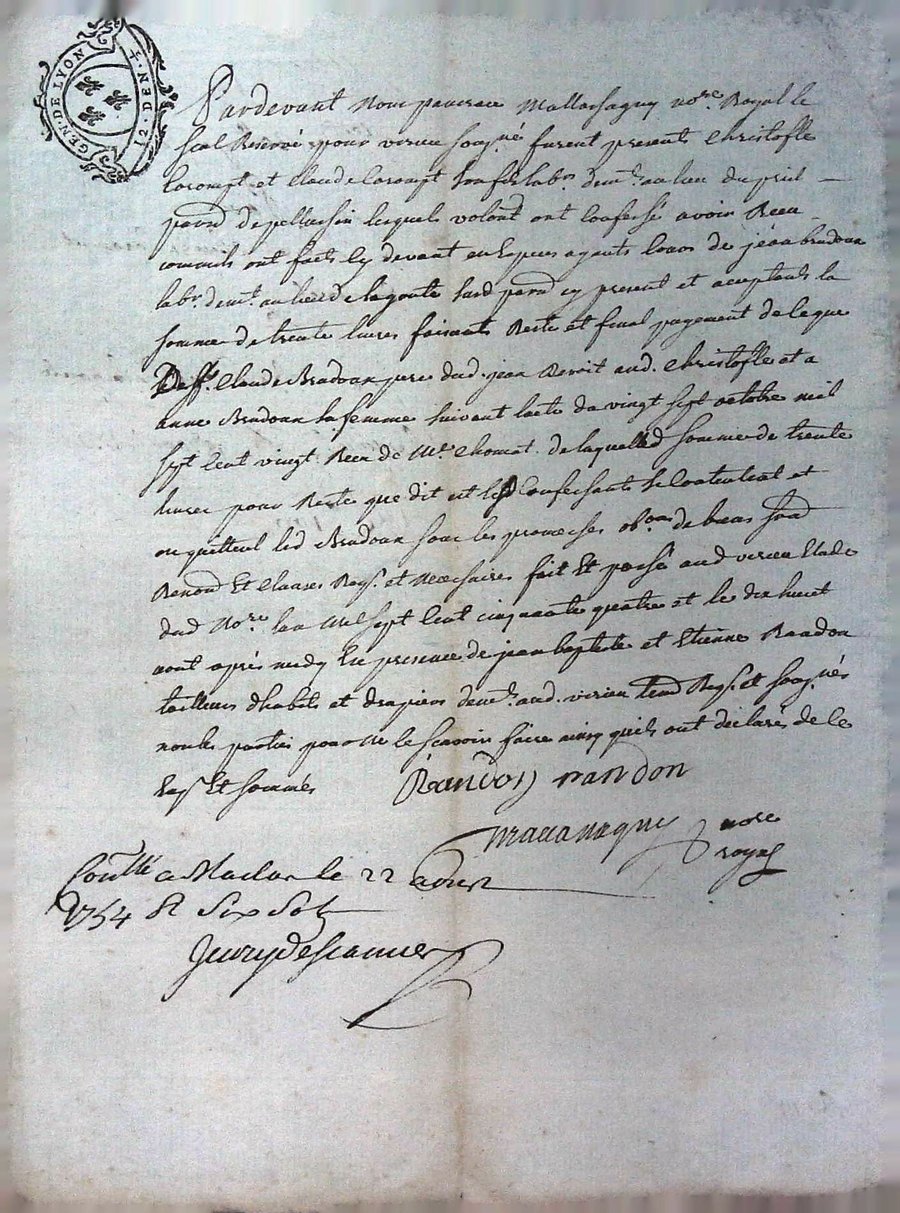 GEN · DE LYON 12 · DEN · 4
Pardevant Nous Mallassagny no.re Royal le
scel Reservé pour verieu soug.né furent presents Christofle
Corompt et Claude Corompt son fils lab.rs dem.t au lieu du
parr. de pellussin lesquels volont. ont confessé avoir Receu
comm'ils ont faits cy devant en especes de jean bradoan
lab.r dem.t au lieu de lagoute parr. cy present et acceptants la
somme de trente livres faisants Reste et final pagement de ce que
deff.t Claude Bradoan pere dud. jean devoit aud. Christofle et a
anne Bradoan sa femme suivant lacte du vingt sept octobre mil
sept cent vingt Receu de M.re Chomat de laquelle somme de trente
livres pour Reste que dit est lesd confessants se Contentent et
en quittent led Bradoan sous les promesses ob.ons de biens
Renon.d Et Clauses Req.s et Necessaires fait Et passé aud verieu Etude
dud No.re lan Mil sept cent cinquante quatre et le dix huit
aout après midy En presence de jean baptiste et Etienne Randon
tailleurs dhabits et drapiers dem.t aud. verieu Req.s et soug.nés
non les parties pour ne le scavoir faire ainsy quils ont declarés de ce
Enq.s Et sommés Randon randon
Mallassagny no.re
royal
Con.llé a Maclas le 22 aout
1754 R Six Sols